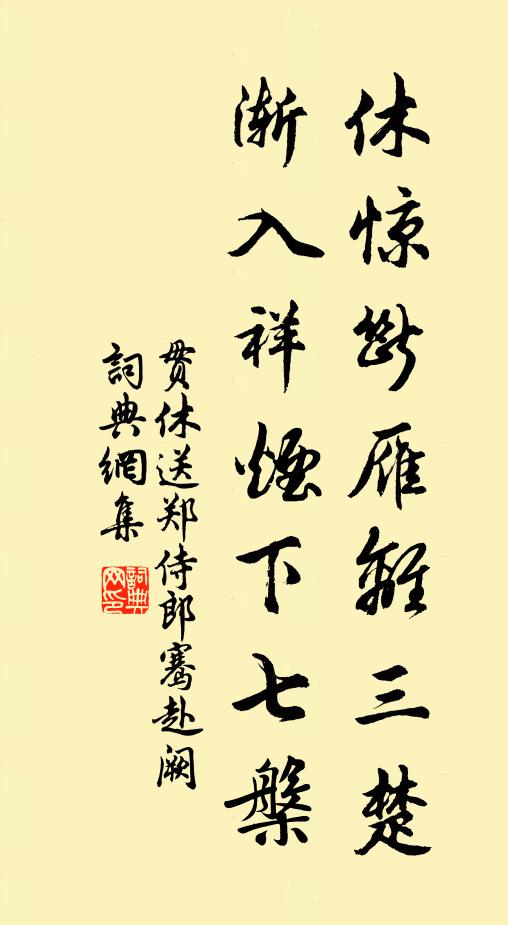 休惊断雁離三楚
漸入祥煙下七槃
贯休送郑侍郎骞赴阙
詞典網集
詞典网印